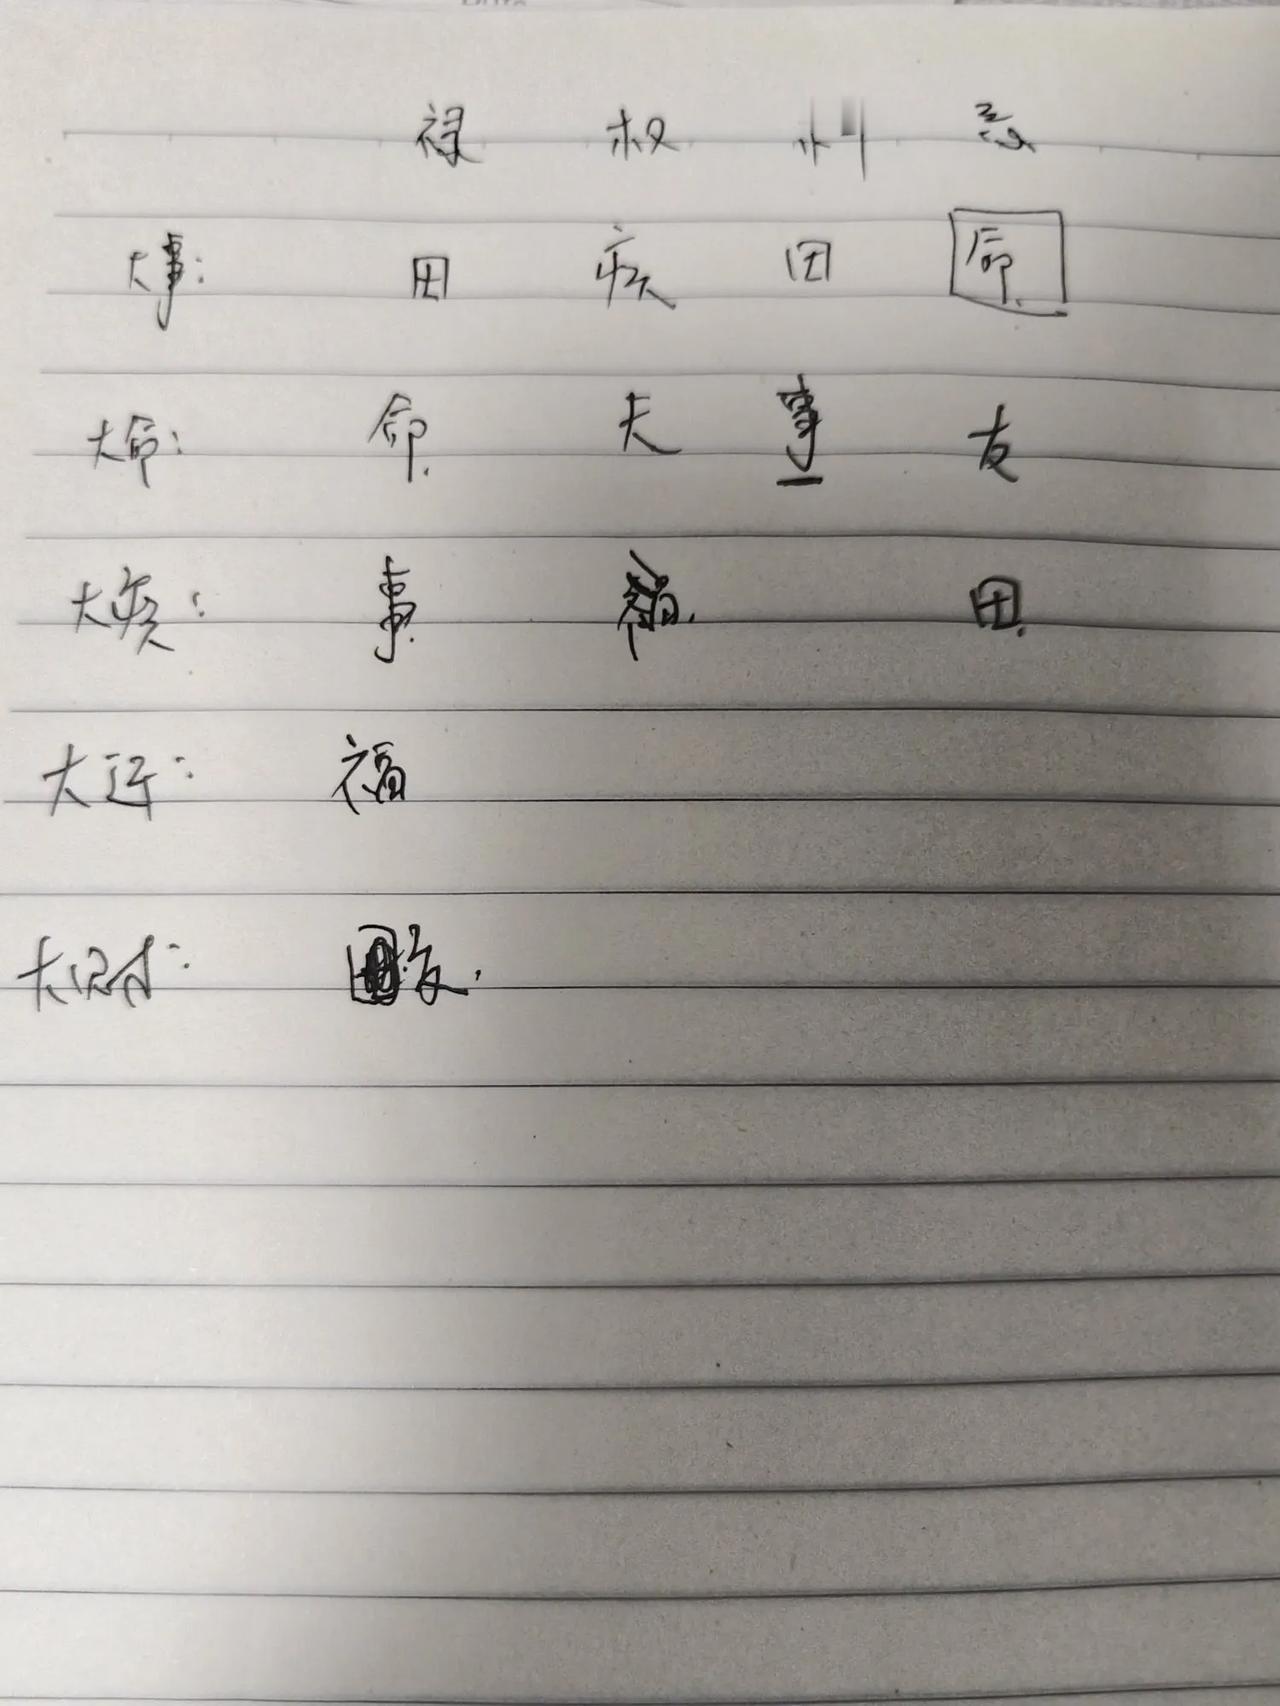 禄 权 科 忌
大事： 田 疾 田 命
大命： 命 夫 事 友
大疾： 事 福 田
大迁： 福
大财： 友